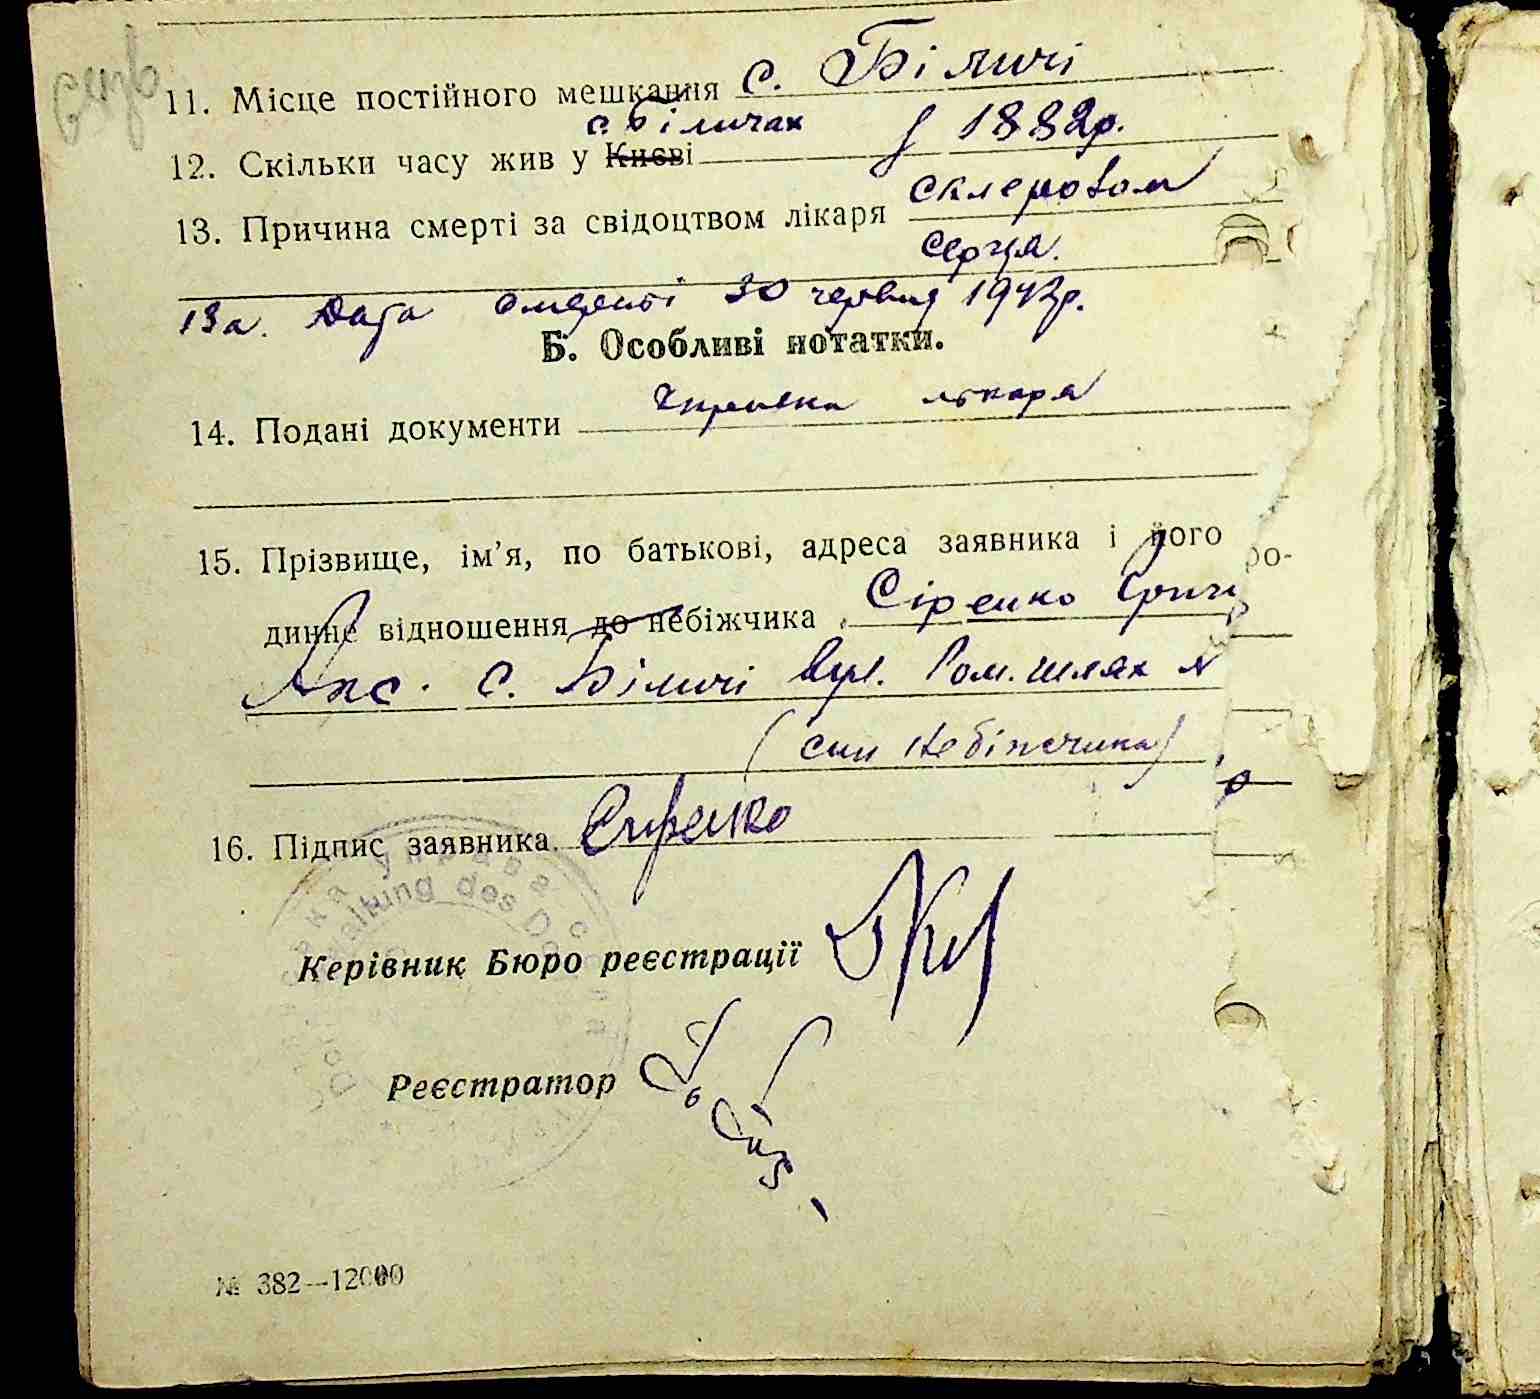 11. Місце постійного мешкання с. Біличі
с. Біличах
12. Скільки часу жив у Києві з 1882р.
13. Причина смерті за свідоцтвом лікаря склерозом
серця.
13а. Дата смерті 30 червня 1942р.
Б. Особливі нотатки.
14. Подані документи лікаря
15. Прізвище, ім’я, по батькові, адреса заявника і його ро-
динне відношення до небіжчика Сіренко Григ
с. Біличі вул. Ром. шлях №
(син небіжчика)
16. Підпис заявника Сиренко
Керівник Бюро реєстрації
Реєстратор
№ 382—12000